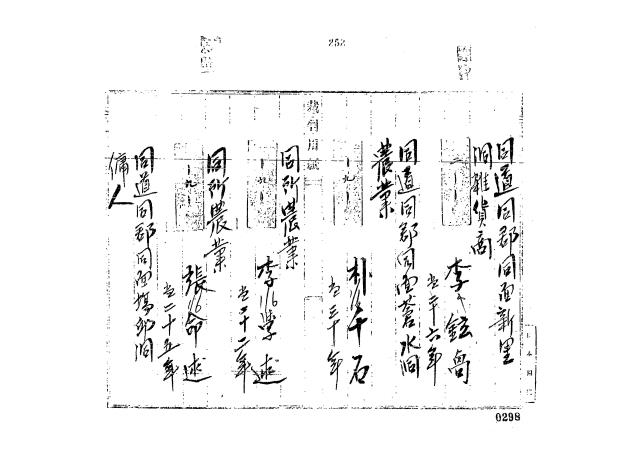 252
同道同郡同面新里
洞雜貨商
李鉉卨
当二十六年
同道同郡同面蒼水洞
農業
朴千石
当三十年
同所農業
李學述
当二十二年
同所農業
張命述
当二十五年
同道同郡同面塢邱洞
傭人
裁判用紙
0298